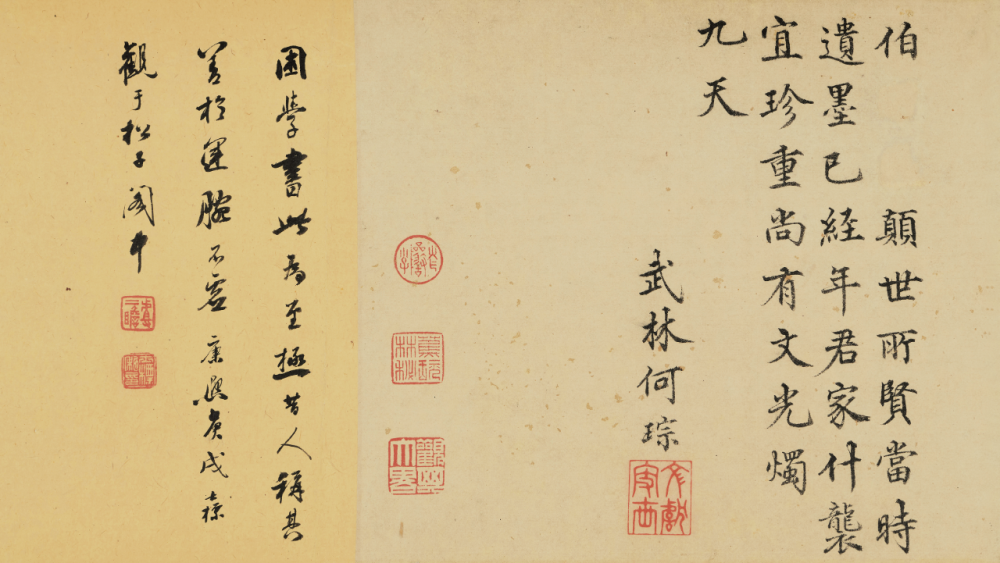 伯 顛世所賢當時
遺墨已經年君家什襲
宜珍重尚有文光燭
九天
武林何琮
觀其大略
困學書此為至極昔人稱其
善於運腕不虛 康熙庚戌
觀于松子閣中